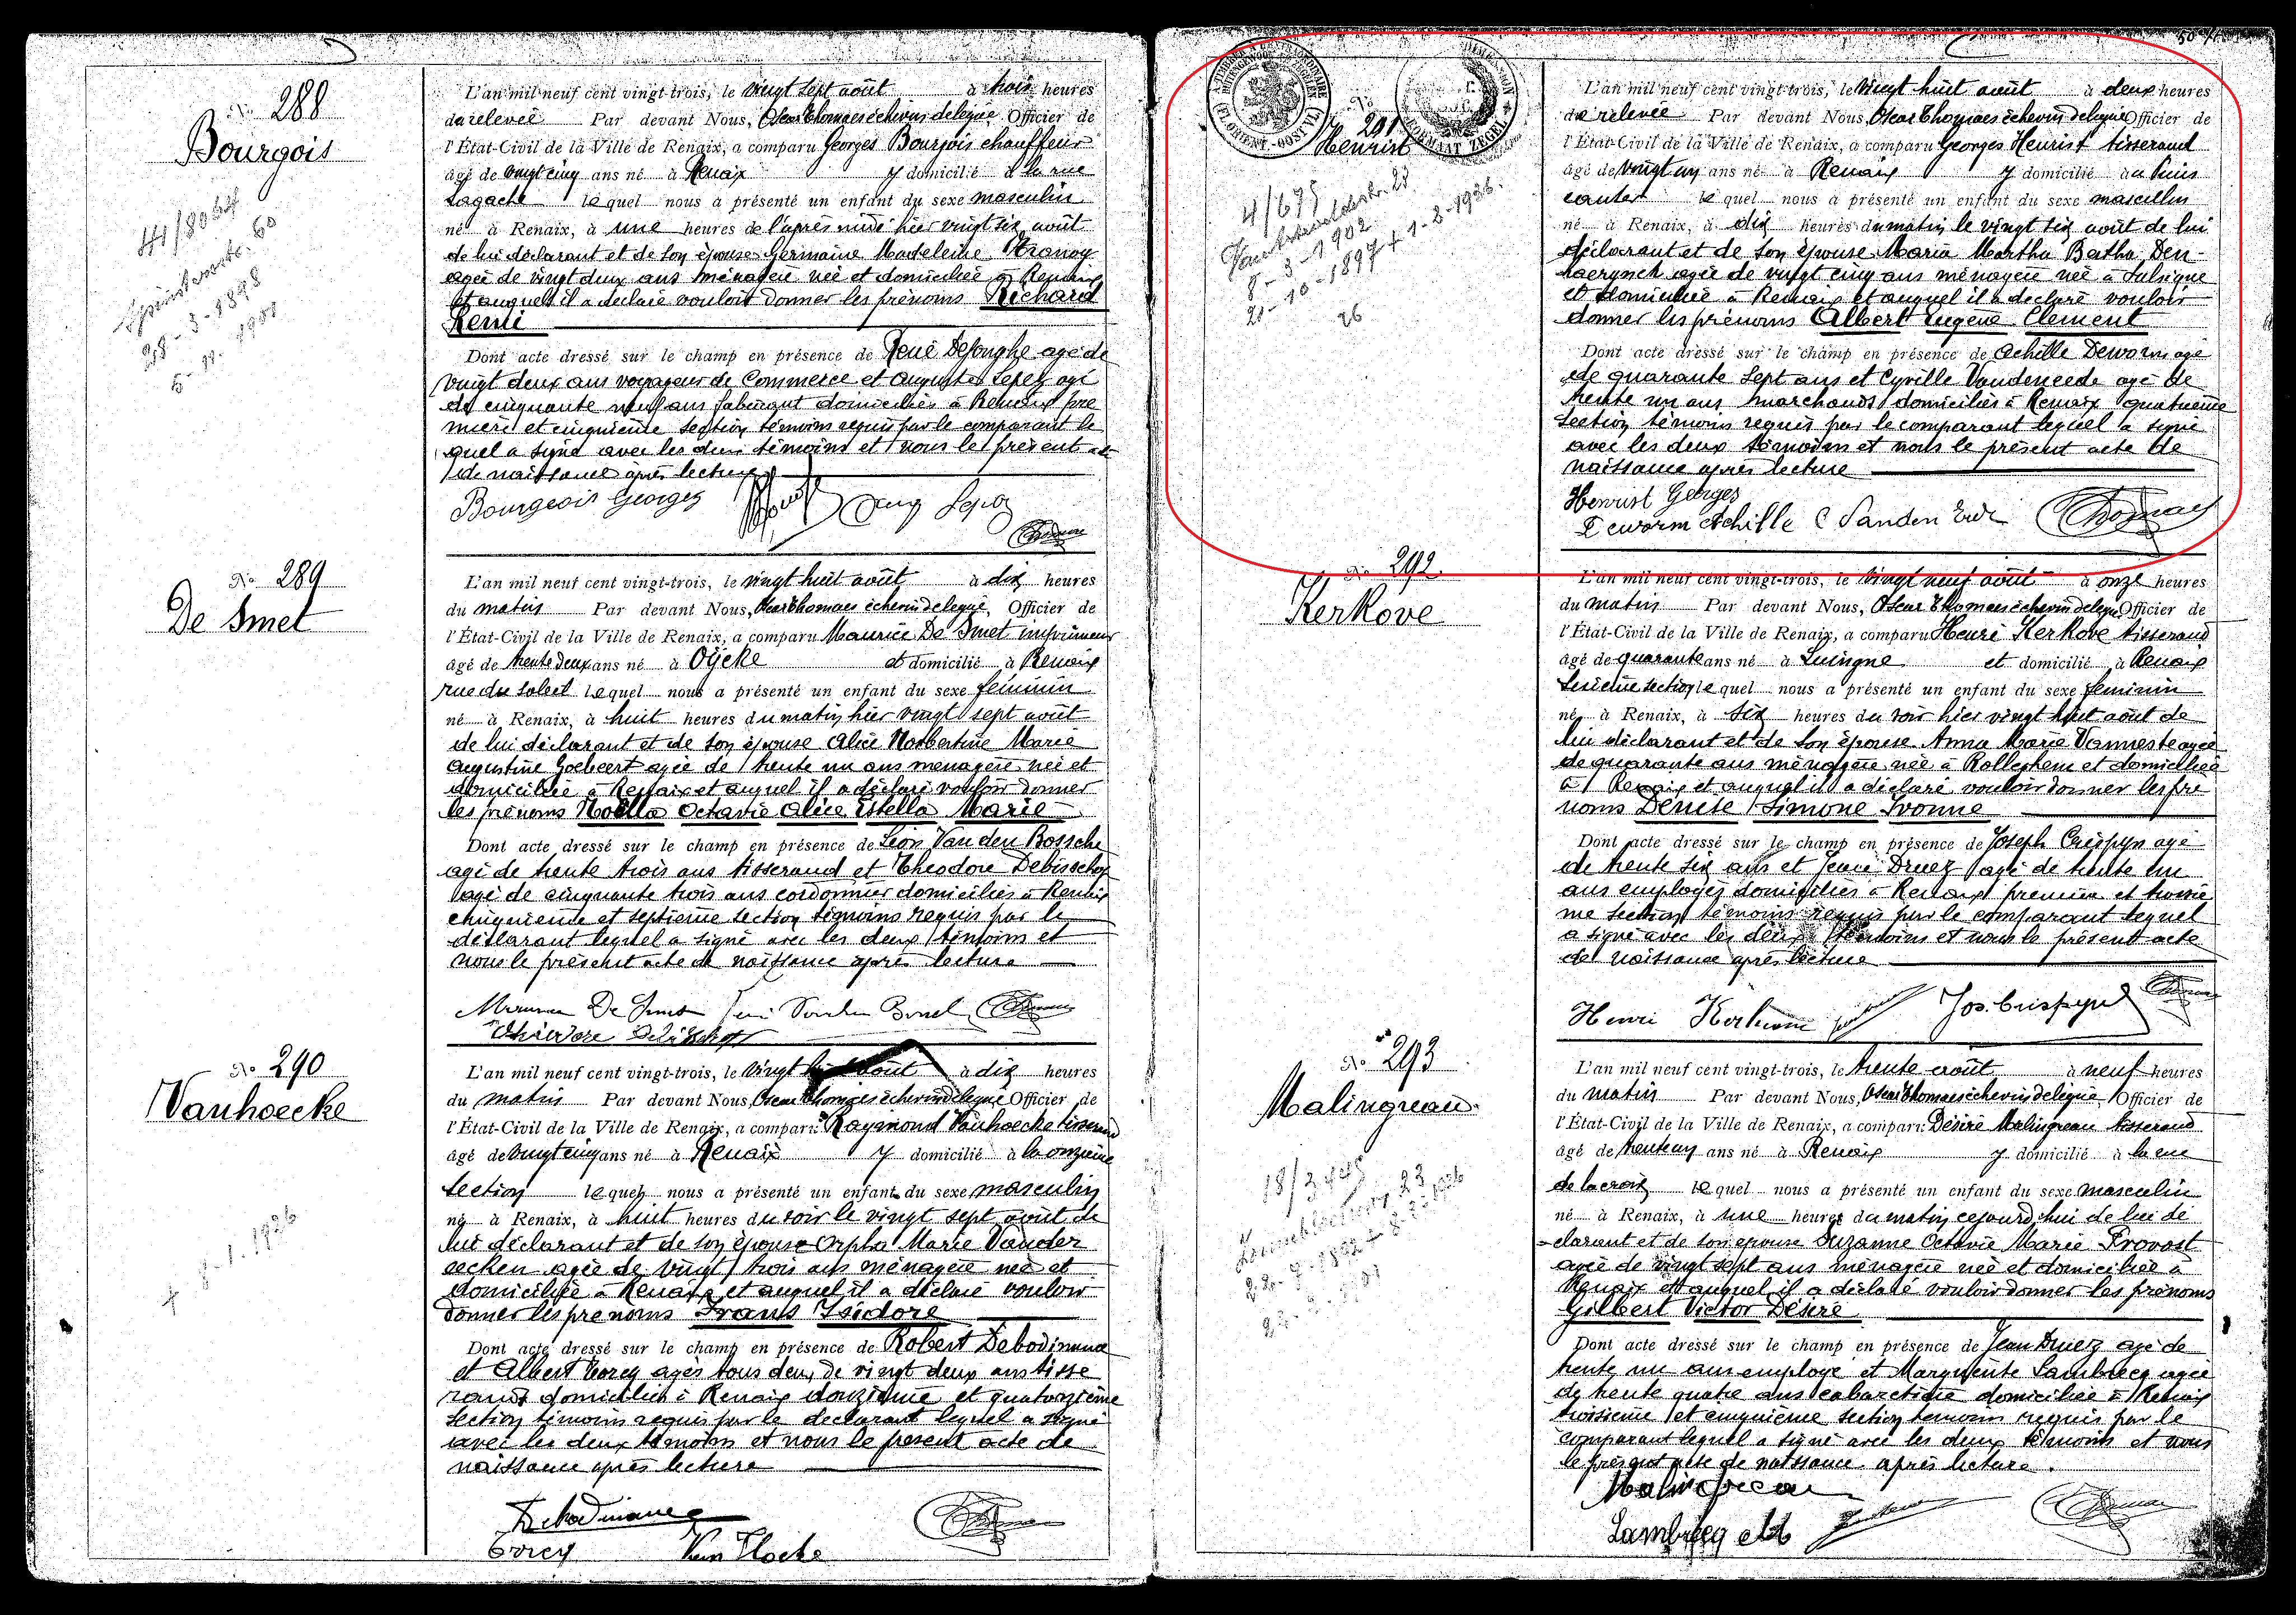 No 288
Bourgois
L'an mil neuf cent vingt-trois, le vingt sept août à trois heures
de relevée Par devant Nous, Oscar Thomaes échevin délégué Officier de
l'État-Civil de la Ville de Renaix, a comparu Georges Bourgois chauffeur
âgé de vingt cinq ans né à Renaix y domicilié à la rue
Lagache lequel nous a présenté un enfant du sexe masculin
né à Renaix, à une heures de l'après midi hier vingt six août
de lui déclarant et de son épouse Germaine Madeleine
agée de vingt deux ans ménagère née et domiciliée à Renaix
et auquel il a déclaré vouloir donner les prénoms Richard
Remi
Dont acte dressé sur le champ en présence de René Dejonghe agé de
vingt deux ans voyageur de Commerce et Auguste Lepez agé
de cinquante neuf ans fabricant domiciliés à Renaix pre
mière et cinquième section témoins requis par le comparant le
quel a signé avec les deux témoins et nous le présent acte
de naissance après lecture
Bourgeois Georges
No 289
De Smet
L'an mil neuf cent vingt-trois, le vingt huit août à dix heures
du matin Par devant Nous, Oscar Thomaes échevin délégué, Officier de
l'État-Civil de la Ville de Renaix, a comparu Maurice De Smet imprimeur
âgé de trente deux ans né à Oycke et domicilié à Renaix
rue du Soleil lequel nous a présenté un enfant du sexe féminin
né à Renaix, à huit heures du matin hier vingt sept août
de lui déclarant et de son épouse Alice Norbertine Marie
Augustine Goebeert agée de trente un ans ménagère née et
domiciliée à Renaix et auquel il a déclaré vouloir donner
les prénoms Noëlla Octavie Alice Estella Marie
Dont acte dressé sur le champ en présence de Léon Van den Bossche
agé de trente trois ans tisserand et Théodore Debisschop
agé de cinquante trois ans cordonnier domiciliés à Renaix
cinquième et septième section témoins requis par le
déclarant lequel a signé avec les deux témoins et
nous le présent acte de naissance après lecture
No 290
Vanhoecke
L'an mil neuf cent vingt-trois, le vingt huit août à dix heures
du matin Par devant Nous, Oscar Thomaes échevin délégué Officier de
l'État-Civil de la Ville de Renaix, a comparu Raymond Vanhoecke tisserand
âgé de vingt cinq ans né à Renaix y domicilié à la onzième
section lequel nous a présenté un enfant du sexe masculin
né à Renaix, à huit heures du soir le vingt sept août de
lui déclarant et de son épouse Orpha Marie Vander
eecken agée de vingt trois ans ménagère née et
domiciliée à Renaix et auquel il a déclaré vouloir
donner les prénoms Frans Isidore
Dont acte dressé sur le champ en présence de Robert Debodinance
et Albert agés tous deux de vingt deux ans tisse
rands domiciliés à Renaix douzième et quatorzième
section témoins requis par le déclarant lequel a signé
avec les deux témoins et nous le présent acte de
naissance après lecture
Debodinance
Van Hoecke
No 291
Heurist
4/675
8-3-1902
21-10-1897 + 1-8-1936.
26
L'an mil neuf cent vingt-trois, le vingt huit août à deux heures
de relevée Par devant Nous, Oscar Thomaes échevin délégué Officier de
l'État-Civil de la Ville de Renaix, a comparu Georges Heurist tisserand
âgé de vingt un ans né à Renaix y domicilié au Puis
canter lequel nous a présenté un enfant du sexe masculin
né à Renaix, à dix heures du matin le vingt six août de lui
déclarant et de son épouse Maria Martha Bertha Den-
haerynck agée de vingt cinq ans ménagère née à Sulsique
et domiciliée à Renaix et auquel il a déclaré vouloir
donner les prénoms Albert Eugène Clement
Dont acte dressé sur le champ en présence de Achille Deworm agé
de quarante sept ans et Cyrille Vandeneede agé de
trente un ans marchands domiciliés à Renaix quatrième
section témoins requis par le comparant lequel a signé
avec les deux témoins et nous le présent acte de
naissance après lecture
Heurist Georges
Deworm Achille
No 292
Kerkove
L'an mil neuf cent vingt-trois, le vingt neuf août à onze heures
du matin Par devant Nous, Oscar Thomaes échevin délégué Officier de
l'État-Civil de la Ville de Renaix, a comparu Henri Kerkove tisserand
âgé de quarante ans né à Luingne et domicilié à Renaix
sixième section lequel nous a présenté un enfant du sexe féminin
né à Renaix, à six heures du soir hier vingt huit août de
lui déclarant et de son épouse Anna Marie Vanneste agée
de quarante ans ménagère née à Rolleghem et domiciliée
à Renaix et auquel il a déclaré vouloir donner les pré
noms Denise Simone Ivonne
Dont acte dressé sur le champ en présence de Joseph Crispyn agé
de trente six ans et Jean Druez agé de trente un
ans employés domiciliés à Renaix première et troisiè
me section témoins requis par le comparant lequel
a signé avec les deux témoins et nous le présent acte
de naissance après lecture
Henri Kerkove Jos. Crispyn
No 293
Malingreau
L'an mil neuf cent vingt-trois, le trente août à neuf heures
du matin Par devant Nous, Oscar Thomaes échevin délégué, Officier de
l'État-Civil de la Ville de Renaix, a comparu Désiré Malingreau tisserand
âgé de trente un ans né à Renaix y domicilié à la rue
de la croix lequel nous a présenté un enfant du sexe masculin
né à Renaix, à une heures du matin cejourd'hui de lui dé
clarant et de son épouse Suzanne Octavie Marie Provost
agée de vingt sept ans ménagère née et domiciliée à
Renaix et auquel il a déclaré vouloir donner les prénoms
Gilbert Victor Désiré
Dont acte dressé sur le champ en présence de Jean Druez agé de
trente un ans employé et Marguerite Lambrecq agée
de trente quatre ans cabaretière domiciliée à Renaix
troisième et cinquième section témoins requis par le
comparant lequel a signé avec les deux témoins et nous
le présent acte de naissance après lecture.
Malingreau